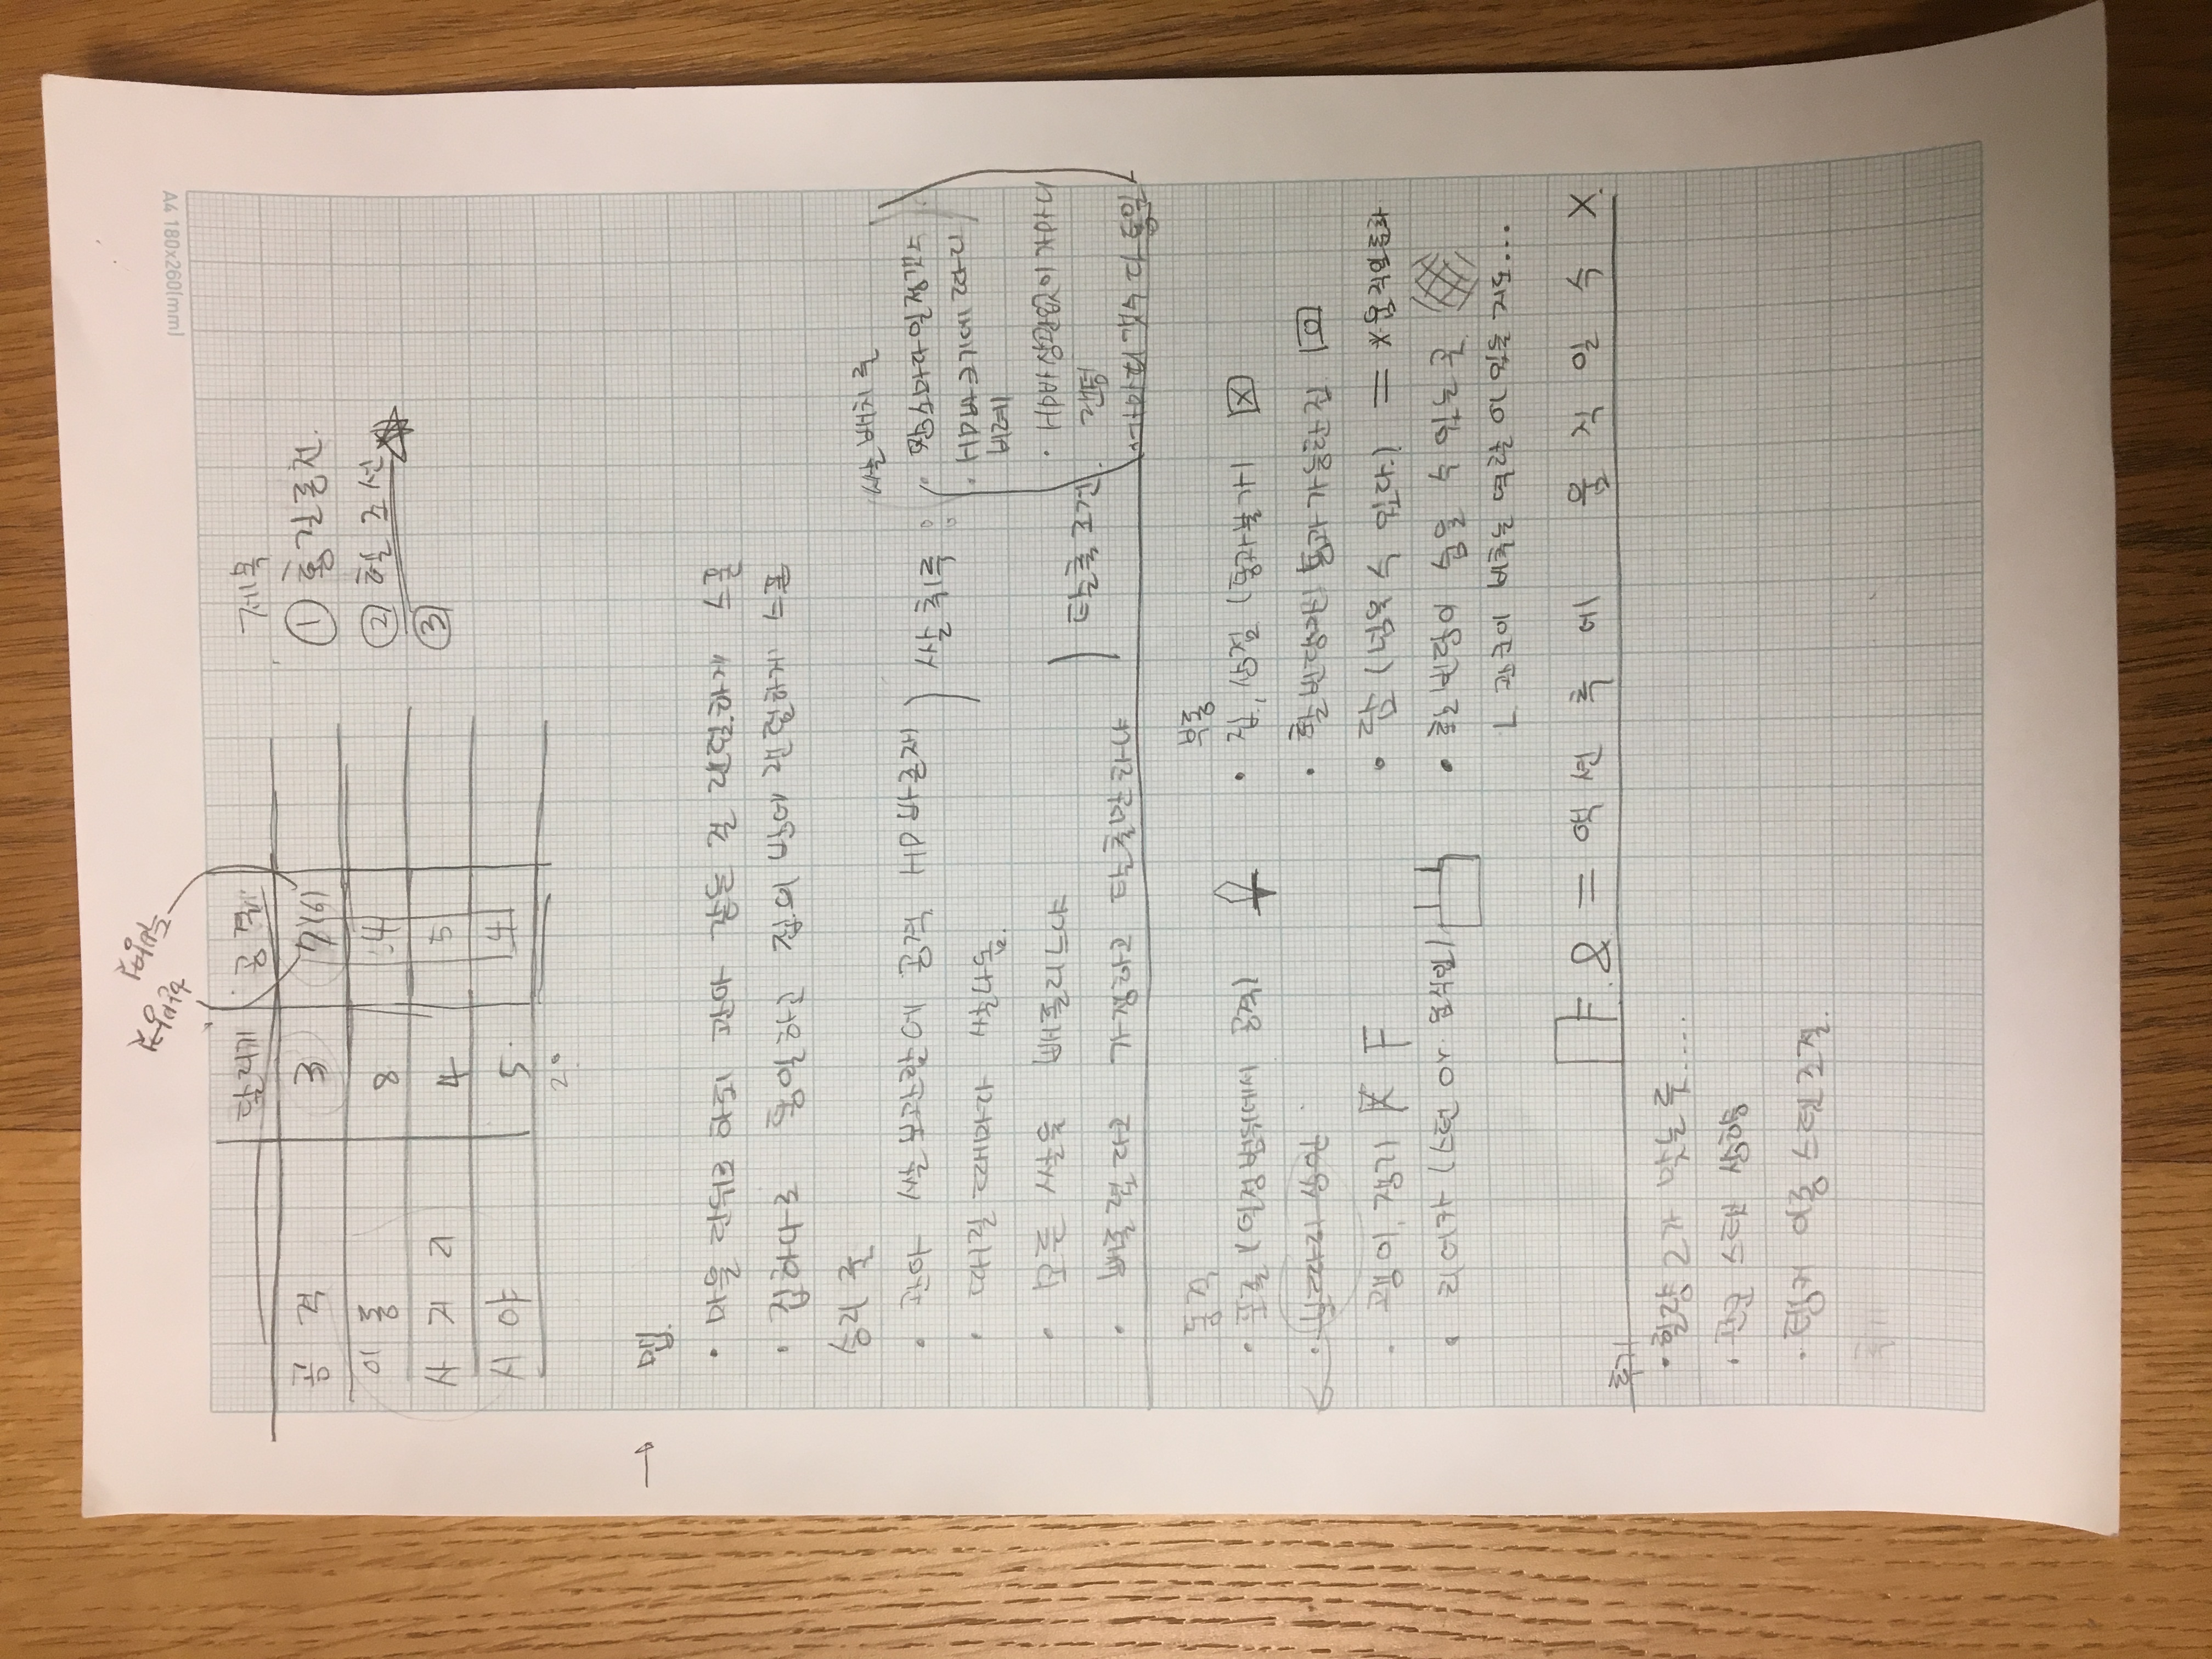 A4 180x260(mm)
달리기 공격
공격 3 7(6)
이동 8 4
사거리 4 5
시야 5 4
20
제목
① 홍길동전.
② 헬조선
③
→ 맵.
· 마을 단위로 하되 관아 같은 걸 랜덤하게 스폰
· 집하나로 통일하고 집의 밖에 랜덤하게 스폰
승리 룻
· 관아 쌀 보관함에 공격 HP바 존재
· 때릴 때마다 쌀나옴.
쌀 루:
· 모든 쌀을 빼돌리느냐
· 빼돌렸다고 가정하고 탈출만 하냐
탈출 조건
쌀 배치 룻
· 장소마다 일정갯수
· HP바 크기에 따라
비례
· HP바 상관없이 가마니
랜덤
· 가마니 갯수 다 동일
동적
· 포졸 (일정범위에서 공격)
· 보따리 상인
· 괭이, 쟁기 F
· 리어카 (스턴 or 움직임)
부동
· 집, 상점 (통과불가) X
· 활빈당만 통과 가능한 집
· 담 (넘을 수 있다.) = * 움직임 둔화
· 활빈당이 숨을 수 있는 곳
ㄴ 관군이 비추는 역할이 있을지도...
F & = 액션 후에 움직일 수 X.
후기
· 힐량 2가 맞는 룻....
· 관군 스탯 상향
· 탱커 이동 스탯 조절.